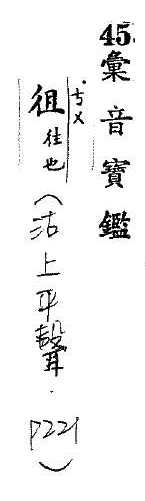 45.彙音寶鑑
徂 ㄘㄨˊ 往也(沽上平聲.P221)